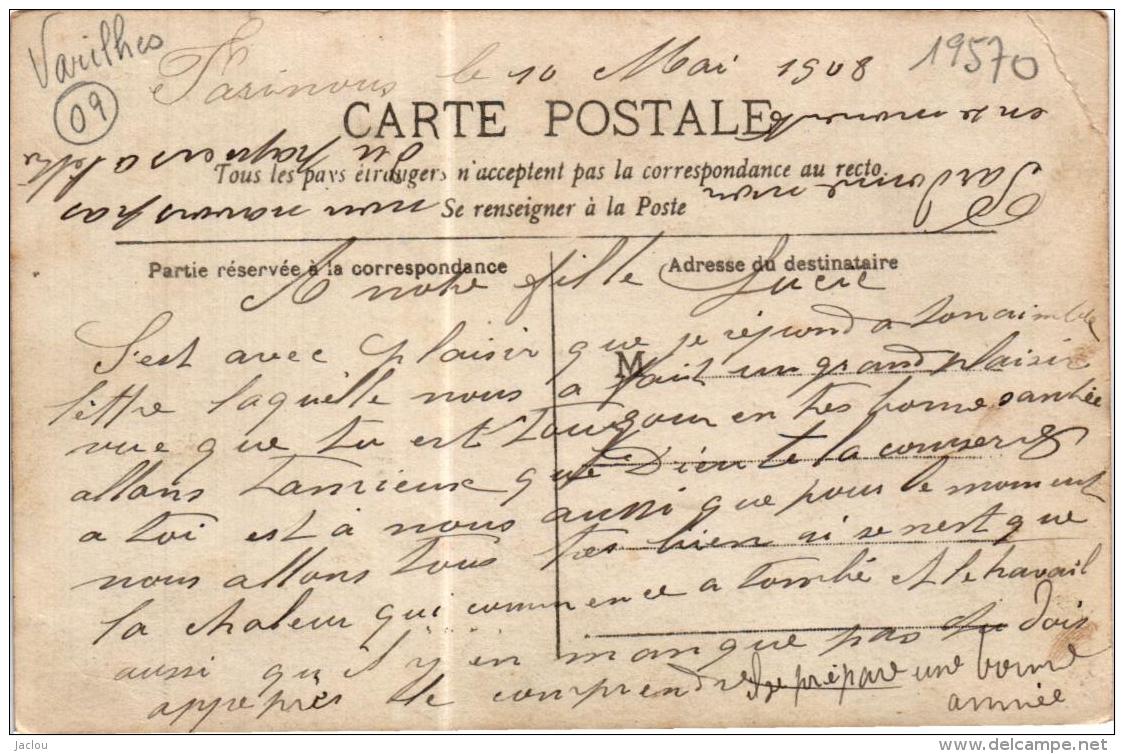 Varilhes
09
19570
le 10 Mai 1908
CARTE POSTALE
Tous les pays étrangers n'acceptent pas la correspondance au recto.
Se renseigner à la Poste
Partie réservée à la correspondance
Adresse du destinataire
M
A notre fille Lucie
S'est avec plaisir que je répond a ton aimble
lèttre laquelle nous a fait un grand plaisir
vue que tu est toujour en très bonne santée
allons tamieux que Dieu te la conserve
a toi est à nous aussi que pour le moment
nous allons tous très bien si se nest que
la chaleur qui commence a tombé et le travail
aussi qu'il y en manque pas tu dois
appeprès le comprendre
Il se prépare une bonne
année
Pardonne moi
en ce moment
jaclou
www.delcampe.net